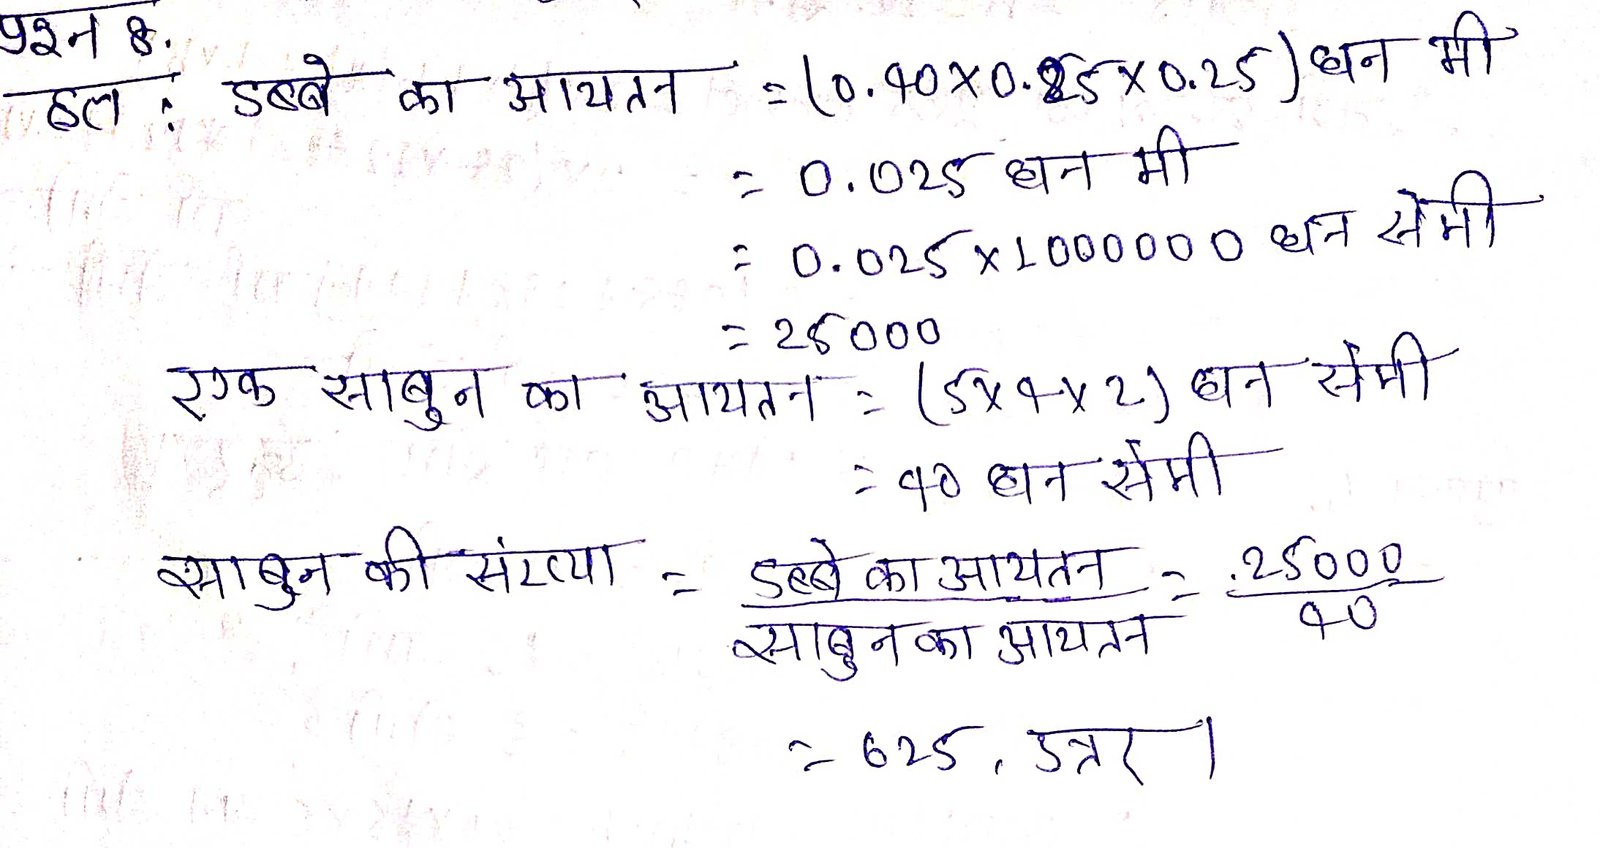 प्रश्न 8.
हल : डब्बे का आयतन = (0.40×0.25×0.25) घन मी
= 0.025 घन मी
= 0.025×1000000 घन सेमी
= 25000
एक साबुन का आयतन = (5×4×2) घन सेमी
= 40 घन सेमी
साबुन की संख्या = डब्बे का आयतन / साबुन का आयतन = .25000 / 40
= 625. उत्तर।